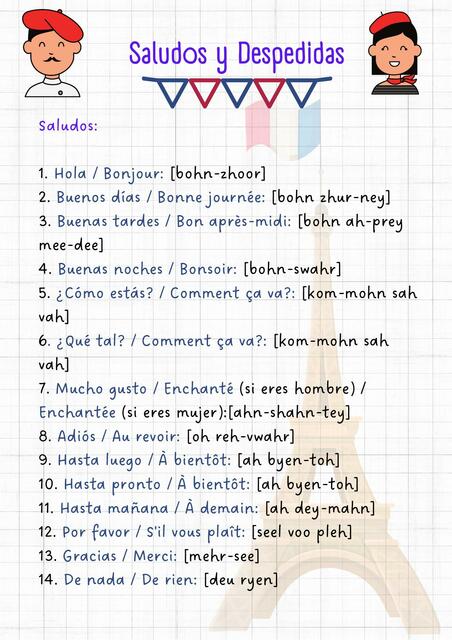 Saludos y Despedidas
Saludos:
1. Hola / Bonjour: [bohn-zhoor]
2. Buenos días / Bonne journée: [bohn zhur-ney]
3. Buenas tardes / Bon après-midi: [bohn ah-prey
mee-dee]
4. Buenas noches / Bonsoir: [bohn-swahr]
5. ¿Cómo estás? / Comment ça va?: [kom-mohn sah
vah]
6. ¿Qué tal? / Comment ça va?: [kom-mohn sah
vah]
7. Mucho gusto / Enchanté (si eres hombre) /
Enchantée (si eres mujer):[ahn-shahn-tey]
8. Adiós / Au revoir: [oh reh-vwahr]
9. Hasta luego / À bientôt: [ah byen-toh]
10. Hasta pronto / À bientôt: [ah byen-toh]
11. Hasta mañana / À demain: [ah dey-mahn]
12. Por favor / S'il vous plaît: [seel voo pleh]
13. Gracias / Merci: [mehr-see]
14. De nada / De rien: [deu ryen]